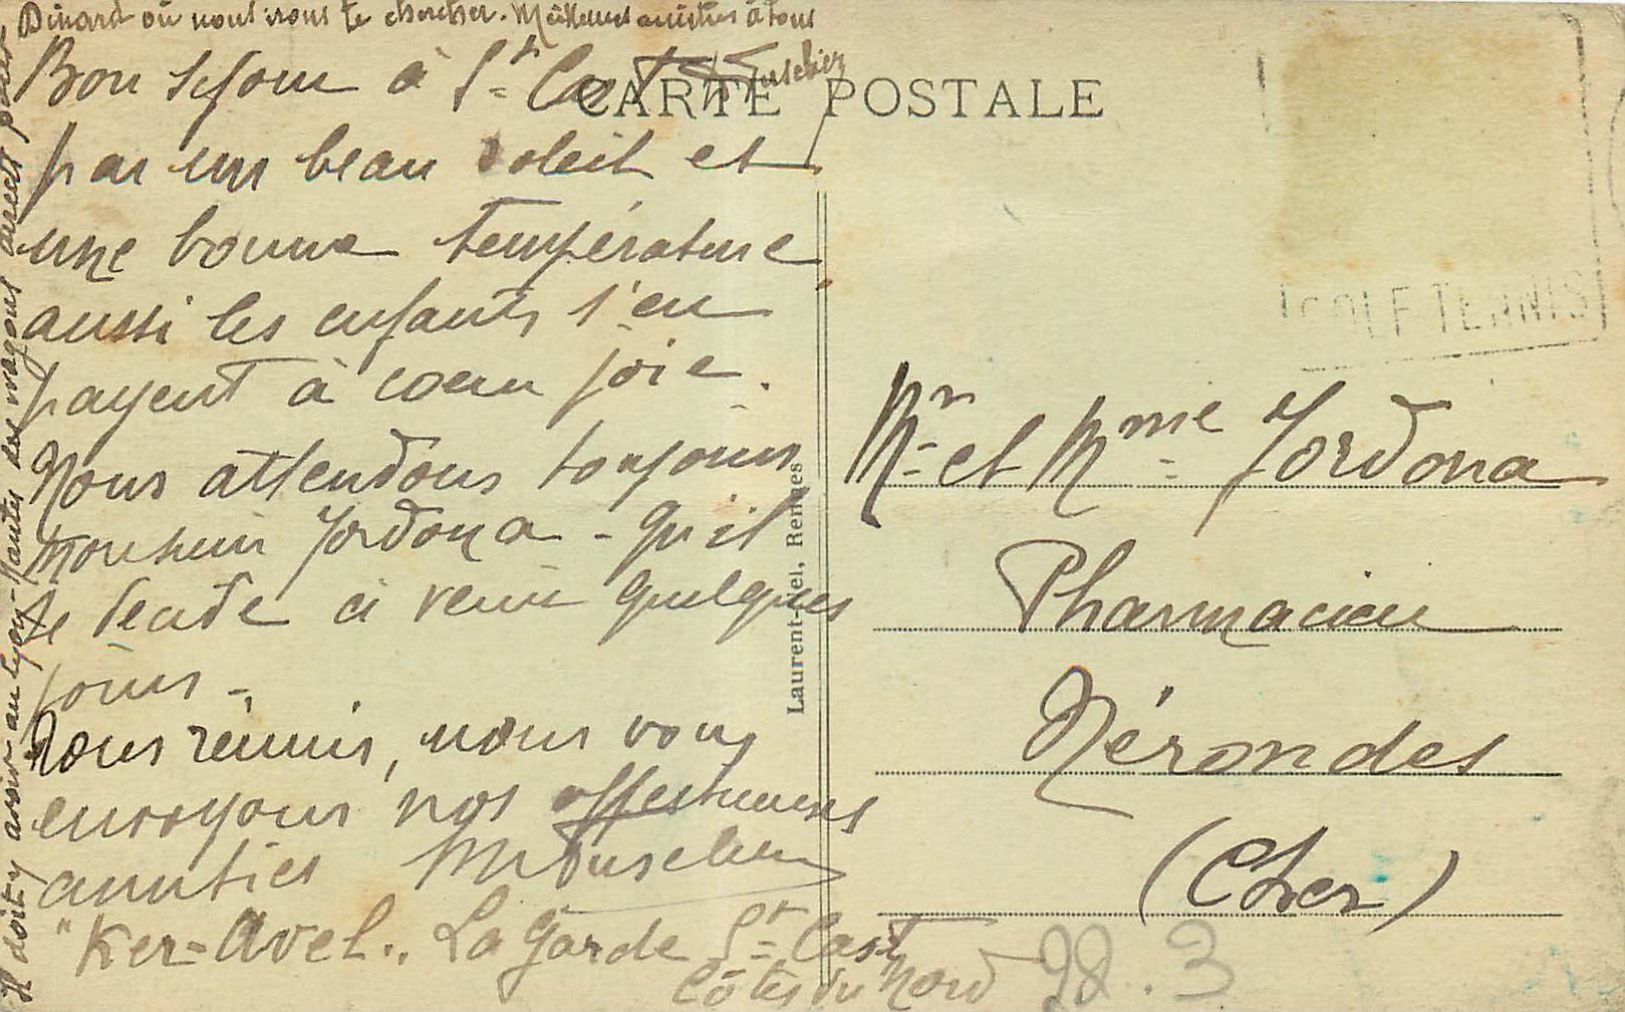 Bon séjour à St Cast
par un beau soleil et
une bonne température
aussi les enfants s'en
payent à cœur joie.
Nous attendons toujours
Monsieur Jordona - Qu'il
se décide à venir quelques
jours -
Tous réunis, nous vous
envoyons nos affectueuses
amitiés
"Ker-Avel., La Garde St Cast
Côtes du Nord
Il doit y avoir au Lyon-Nantes des wagons directs pour
Dinard où nous irons te chercher. Meilleures amitiés à tous
CARTE POSTALE
Laurent-Nel, Rennes
GOLF TENNIS
Mr et Mme Jordona
Pharmacien
Nérondes
(Cher)
98.3